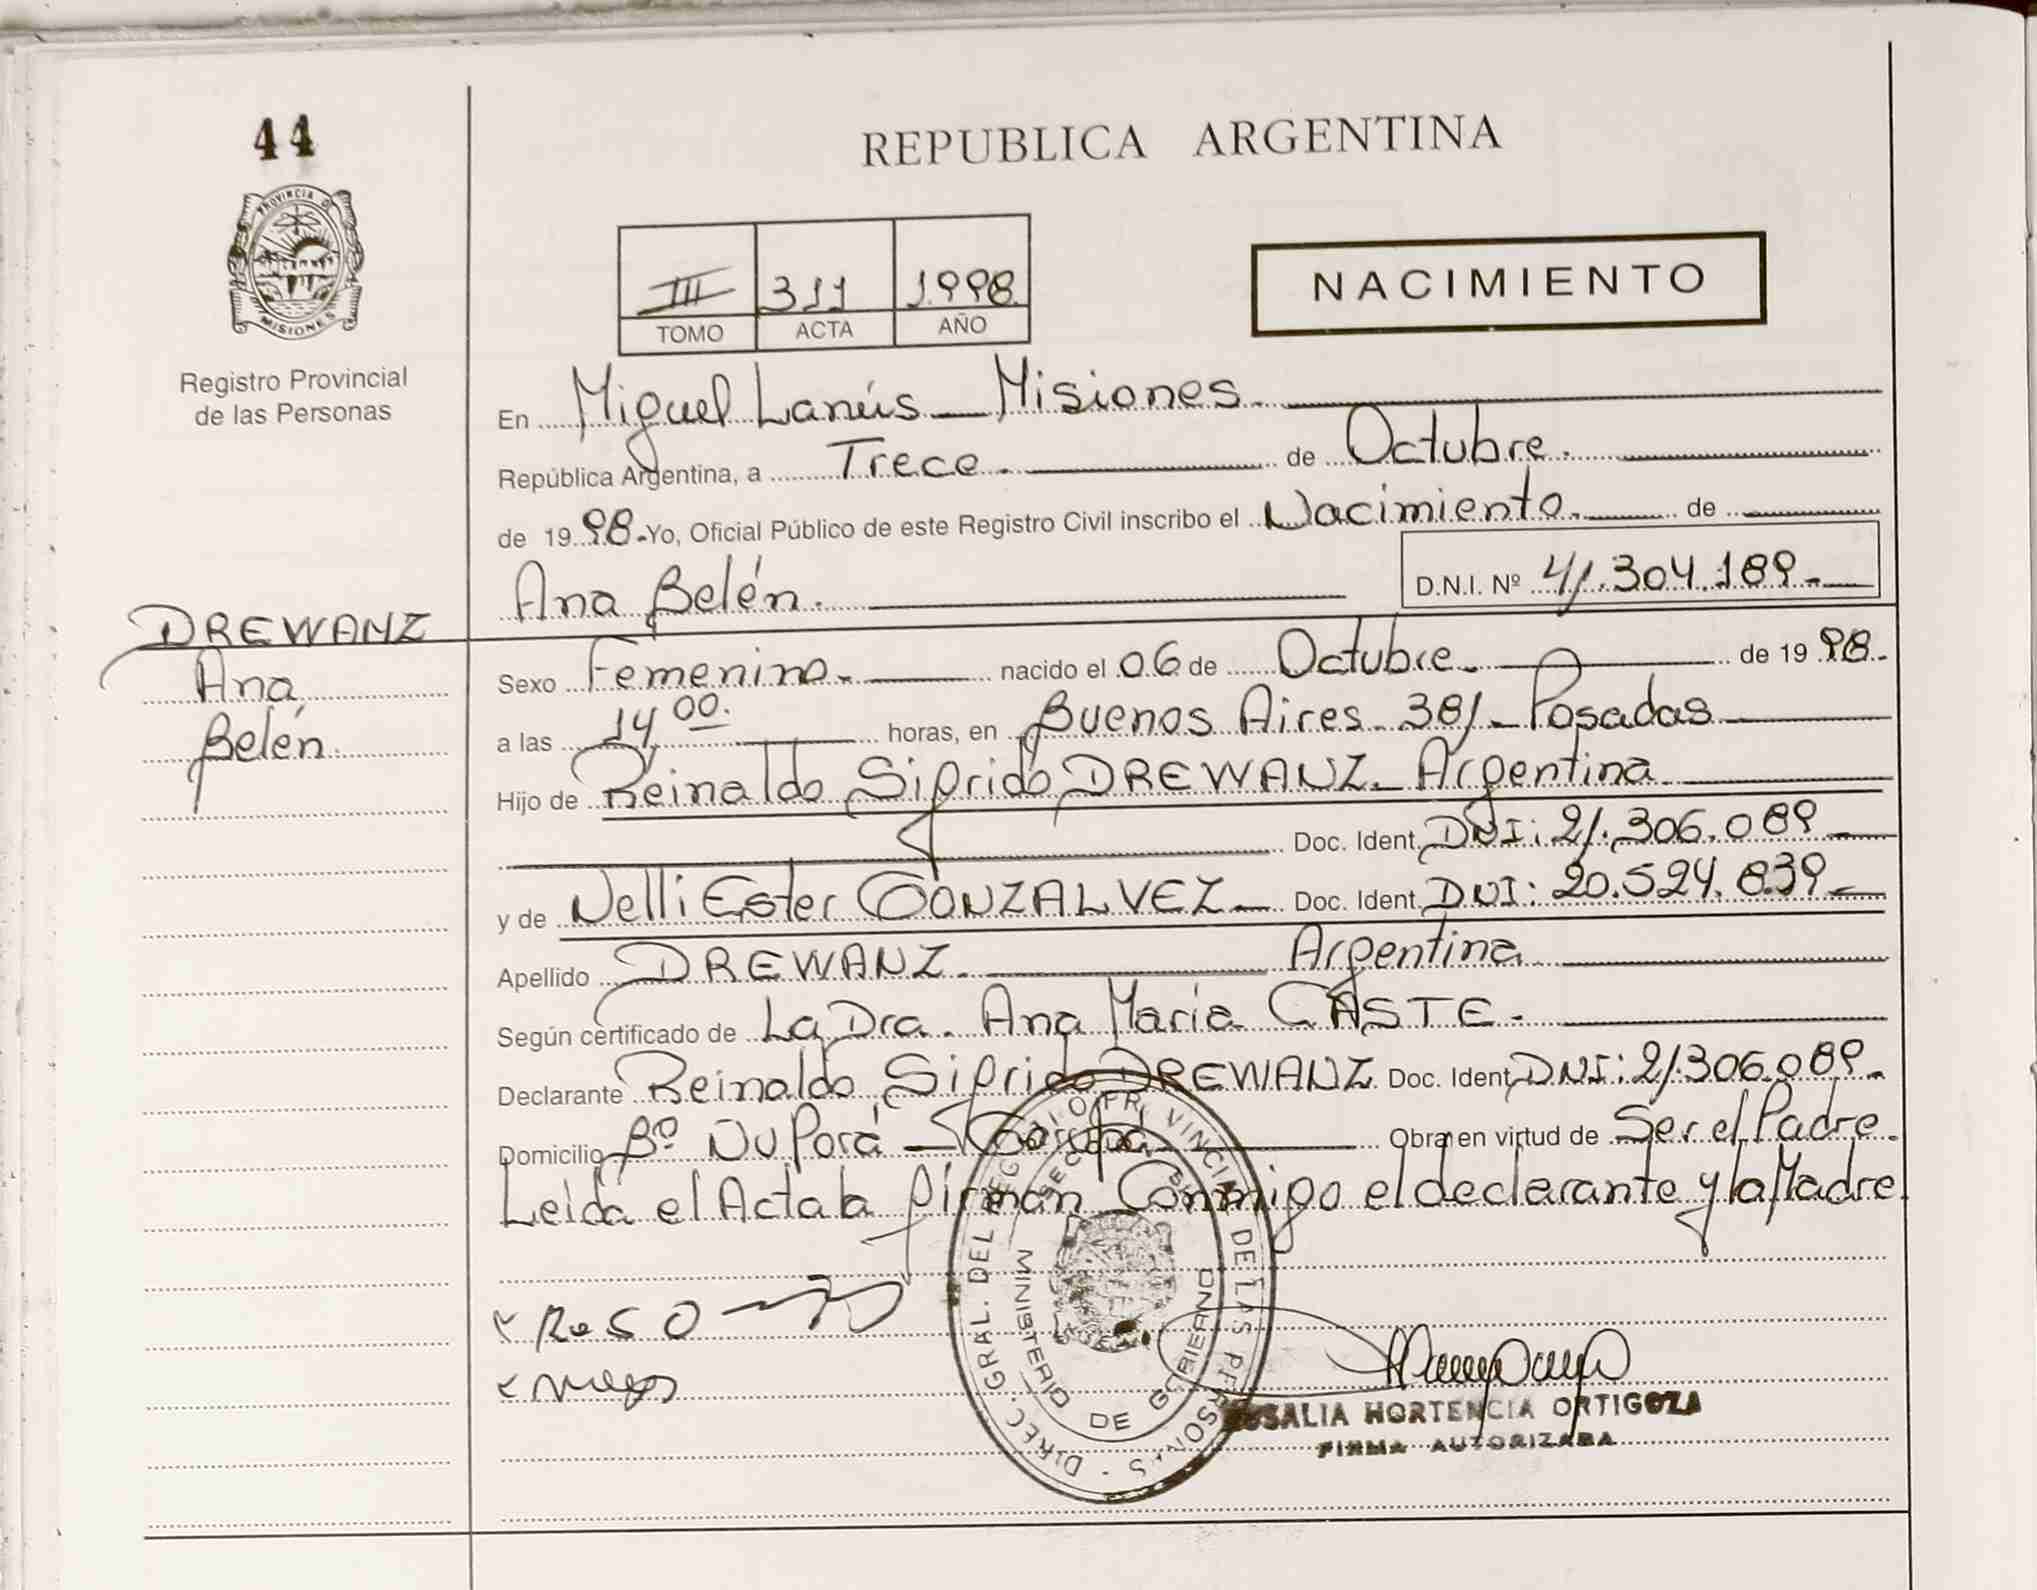 44
PROVINCIA D
MISIONES
Registro Provincial
de las Personas
REPUBLICA ARGENTINA
III 311 1998
TOMO ACTA AÑO
NACIMIENTO
En Miguel Lanús - Misiones.
República Argentina, a Trece. de Octubre.
de 1998.- Yo, Oficial Público de este Registro Civil inscribo el Nacimiento. de
Ana Belén. D.N.I. Nº 41.304.189.-
DREWANZ
Ana
Belén.
Sexo Femenino. nacido el 06 de Octubre. de 1998.-
a las 14,00. horas, en Buenos Aires 381- Posadas
Hijo de Reinaldo Sigrido DREWANZ. Argentina
Doc. Ident. DNI: 21.306.089
y de Nelli Ester GONZALVEZ Doc. Ident. DNI: 20.524.839
Apellido DREWANZ. Argentina
Según certificado de La Dra. Ana Maria CASTE.
Declarante Reinaldo Sigrido DREWANZ Doc. Ident. DNI: 21.306.089.
Domicilio Bº Ñu Porá Obra en virtud de Ser el Padre.
Leida el Acta la firman Conmigo el declarante y la Madre
DIREC. GRAL. DEL REGISTRO PROVINCIAL DE LAS PERSONAS
MINISTERIO DE GOBIERNO
ROSALIA HORTENCIA ORTIGOZA
FIRMA AUTORIZADA